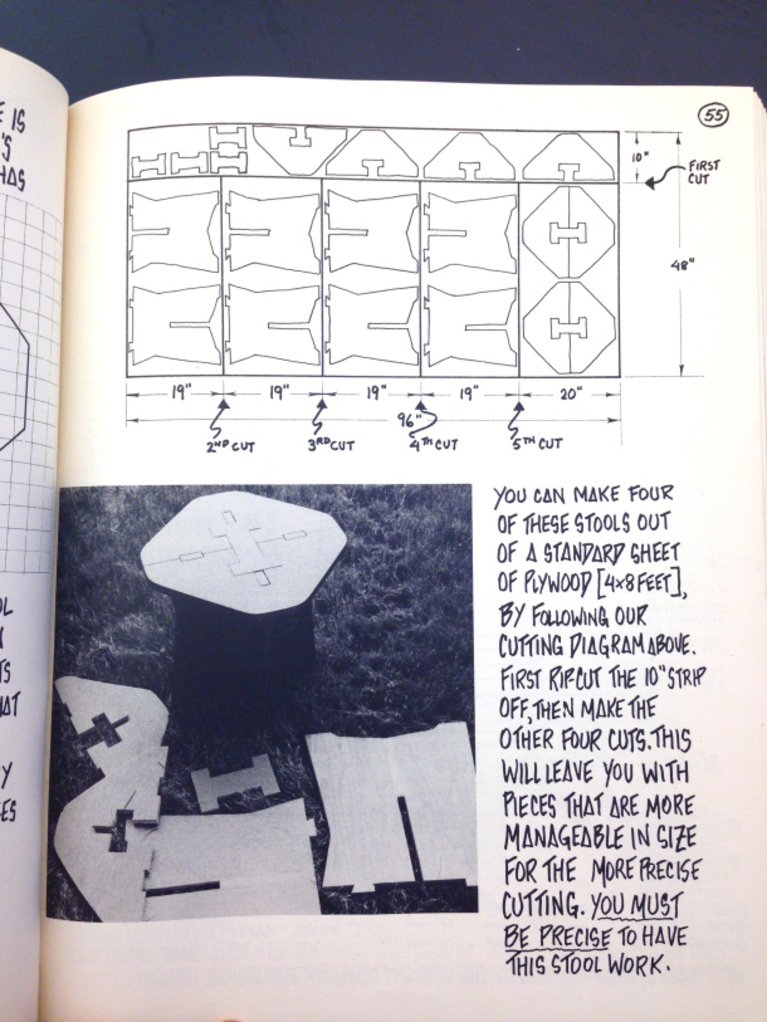 E IS
'S
HAS
55
10"
FIRST
CUT
48"
19"
19"
19"
19"
20"
96"
2ND CUT
3RD CUT
4TH CUT
5TH CUT
YOU CAN MAKE FOUR
OF THESE STOOLS OUT
OF A STANDARD SHEET
OF PLYWOOD [4x8 FEET],
BY FOLLOWING OUR
CUTTING DIAGRAM ABOVE.
FIRST RIP-CUT THE 10" STRIP
OFF, THEN MAKE THE
OTHER FOUR CUTS. THIS
WILL LEAVE YOU WITH
PIECES THAT ARE MORE
MANAGEABLE IN SIZE
FOR THE MORE PRECISE
CUTTING. YOU MUST
BE PRECISE TO HAVE
THIS STOOL WORK.